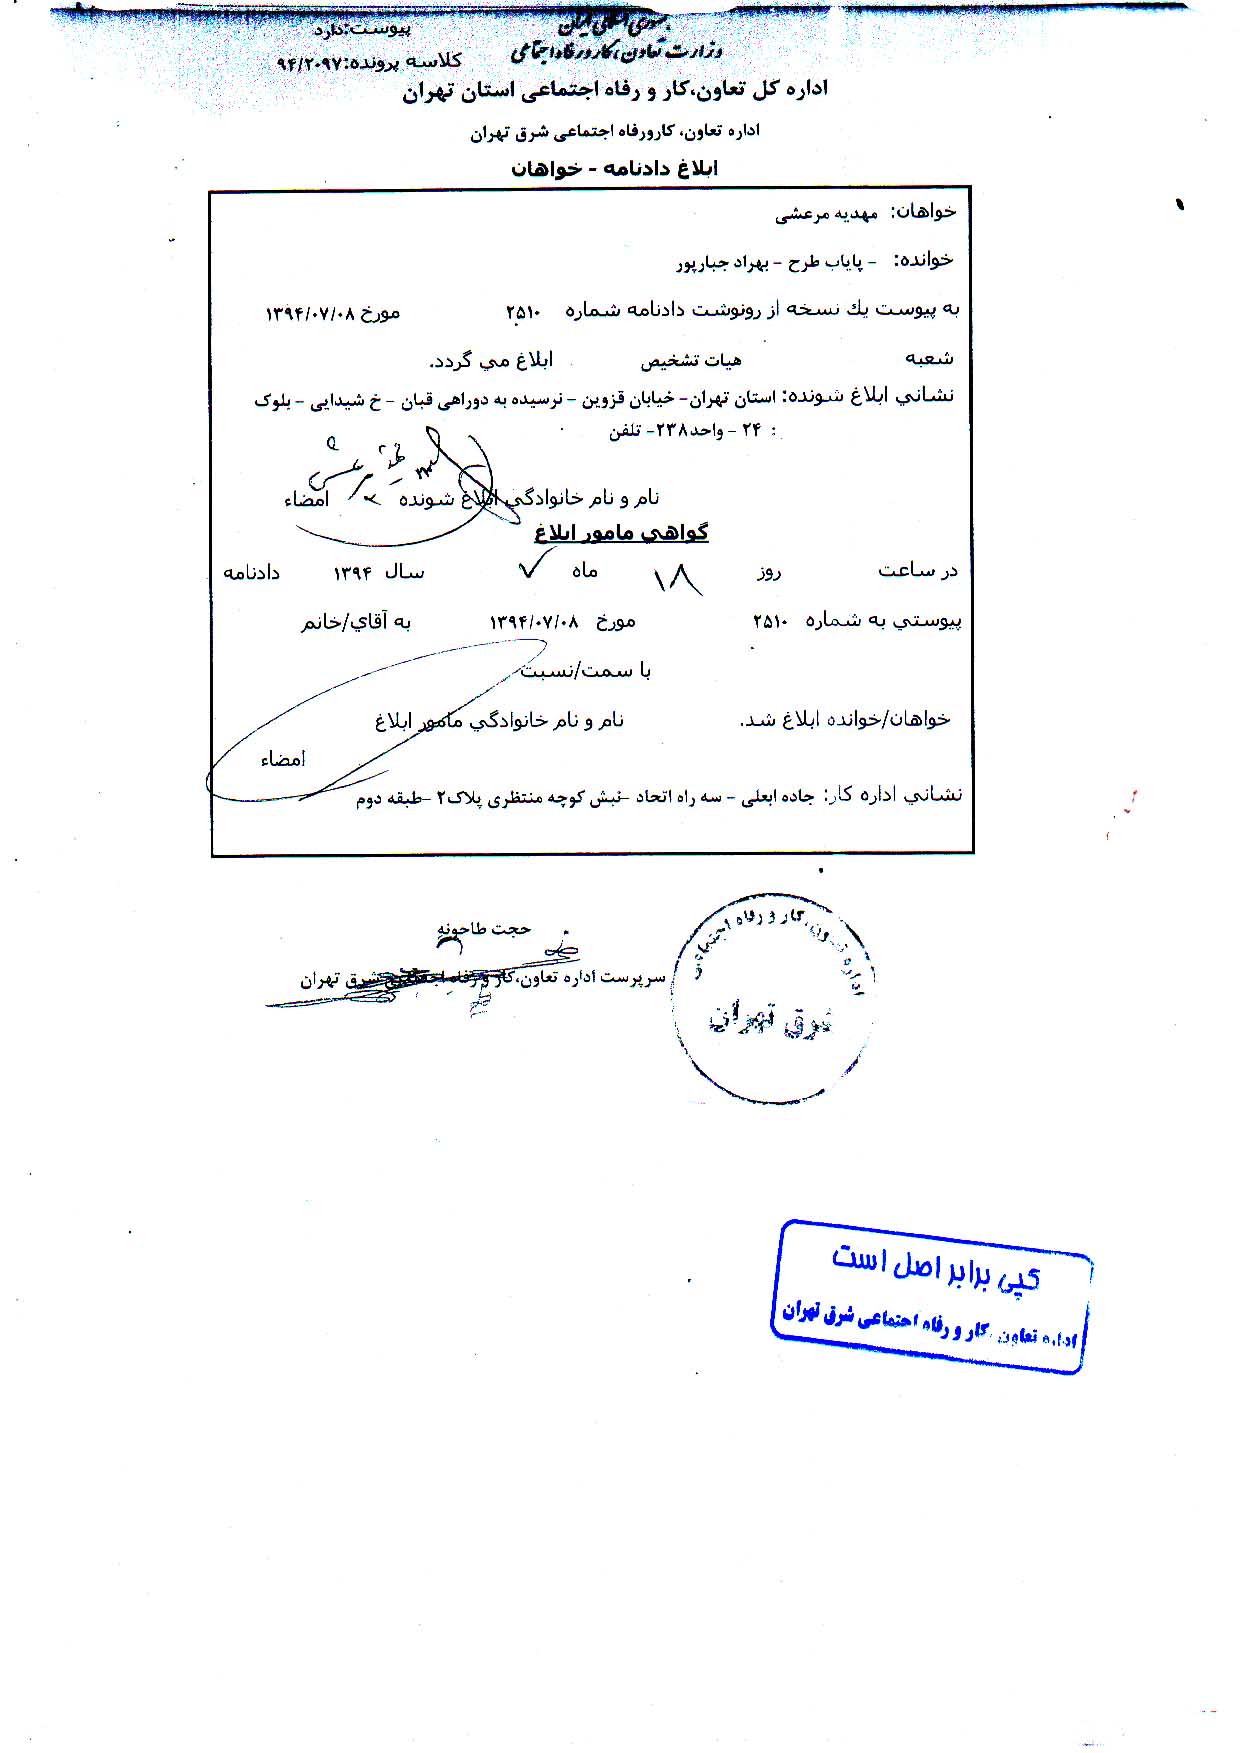 جمهوری اسلامی ایران
پیوست:دارد
وزارت تعاون،کار و رفاه اجتماعی
کلاسه پرونده:۹۴/۲۰۹۷
اداره کل تعاون،کار و رفاه اجتماعی استان تهران
اداره تعاون، کارورفاه اجتماعی شرق تهران
ابلاغ دادنامه - خواهان
خواهان: مهدیه مرعشی
خوانده: - پایاب طرح - بهراد جبارپور
به پیوست یك نسخه از رونوشت دادنامه شماره ۲۵۱۰ مورخ ۱۳۹۴/۰۷/۰۸
شعبه هیات تشخیص ابلاغ مي گردد.
نشاني ابلاغ شونده: استان تهران- خیابان قزوین - نرسیده به دوراهی قبان - خ شیدایی - بلوک
۲۴ - واحد۲۳۸- تلفن :
مرعشی
نام و نام خانوادگي ابلاغ شونده امضاء
گواهي مامور ابلاغ
در ساعت روز ۱۸ ماه ۷ سال ۱۳۹۴ دادنامه
پیوستي به شماره ۲۵۱۰ مورخ ۱۳۹۴/۰۷/۰۸ به آقاي/خانم
با سمت/نسبت
خواهان/خوانده ابلاغ شد. نام و نام خانوادگي مامور ابلاغ
امضاء
نشاني اداره کار: جاده ابعلی - سه راه اتحاد -نبش کوچه منتظری پلاک۲ -طبقه دوم
حجت طاحونه
سرپرست اداره تعاون،کار و رفاه اجتماعی شرق تهران
اداره تعاون،کار و رفاه اجتماعی
شرق تهران
کپی برابر اصل است
اداره تعاون ،کار و رفاه اجتماعی شرق تهران